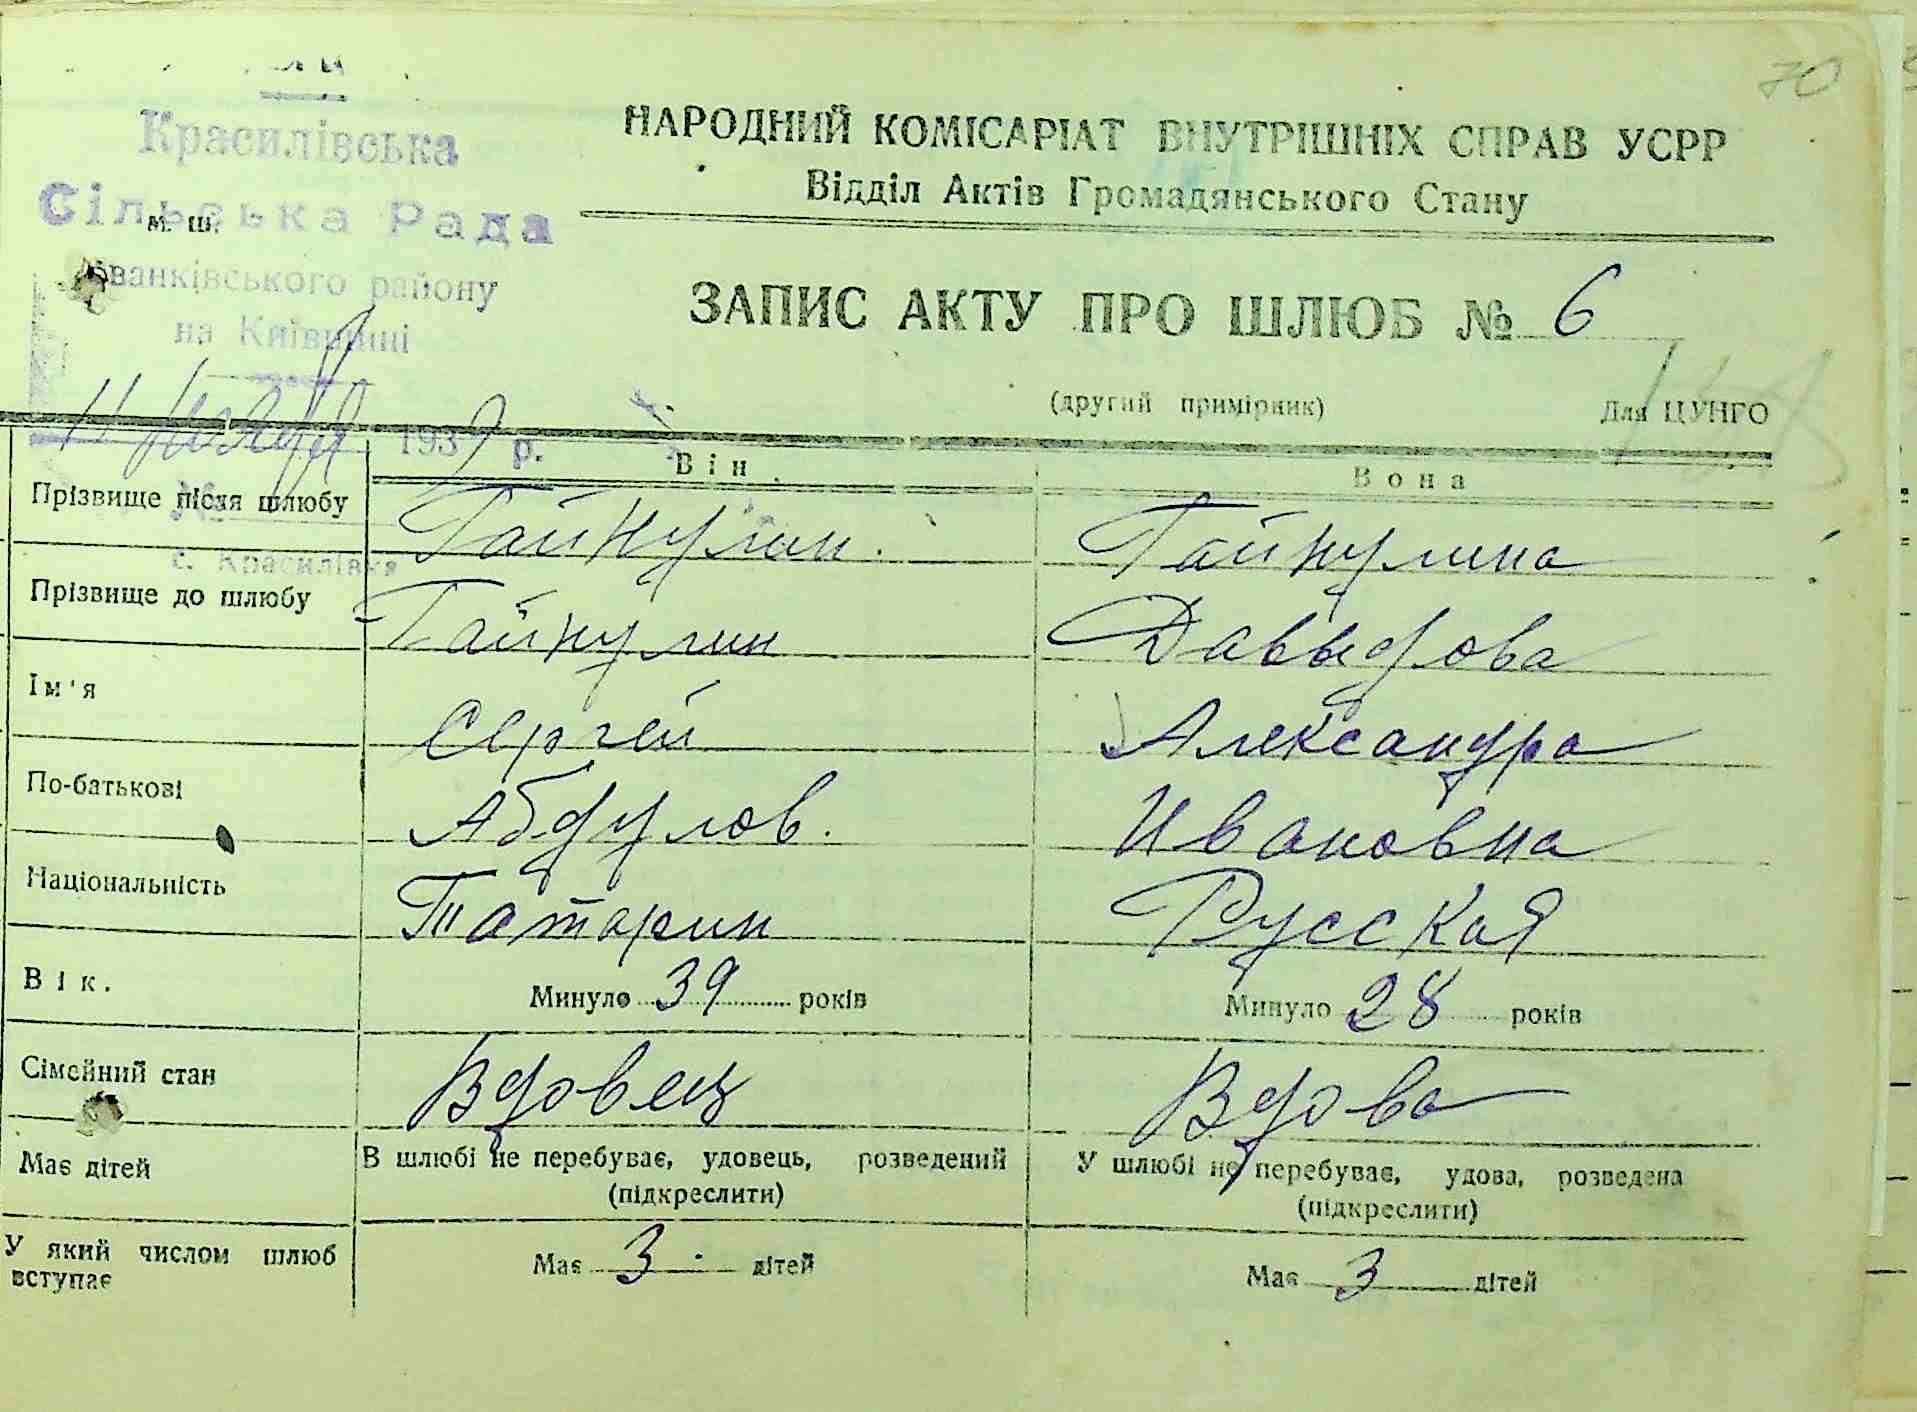 70
Красилівська
Сільська Рада
м. ш.
Іванківського району
на Київщині
НАРОДНИЙ КОМІСАРІАТ ВНУТРІШНІХ СПРАВ УСРР
Відділ Актів Громадянського Стану
ЗАПИС АКТУ ПРО ШЛЮБ № 6
(другий примірник) Для ЦУНГО
11 1939 р.
№
с. Красилівка
Він Вона
Прізвище після шлюбу Гайнулин. Гайнулина
Прізвище до шлюбу Гайнулин Давыдова
Ім'я Сергей Александра
По-батькові Абдулов. Ивановна
Національність Татарин Русская
Вік. Минуло 39 років Минуло 28 років
Сімейний стан Вдовец Вдова
Має дітей В шлюбі не перебуває, удовець, розведений У шлюбі не перебуває, удова, розведена
(підкреслити) (підкреслити)
У який числом шлюб Має 3. дітей Має 3 дітей
вступає